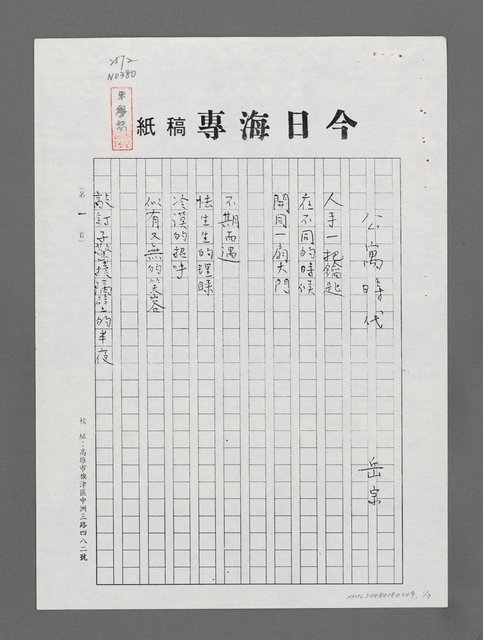 2572
NO380
朱學恕
今日海專稿紙
公寓時代 岳宗
人手一把鑰匙
在不同的時候
開同一扇大門
不期而遇
怯生生的理睬
冷漠的招呼
似有又無的笑容
敲釘子 上的半夜
(第一頁)
校址：高雄市旗津區中洲三路四八二號
NMTL20080180249, 1/3